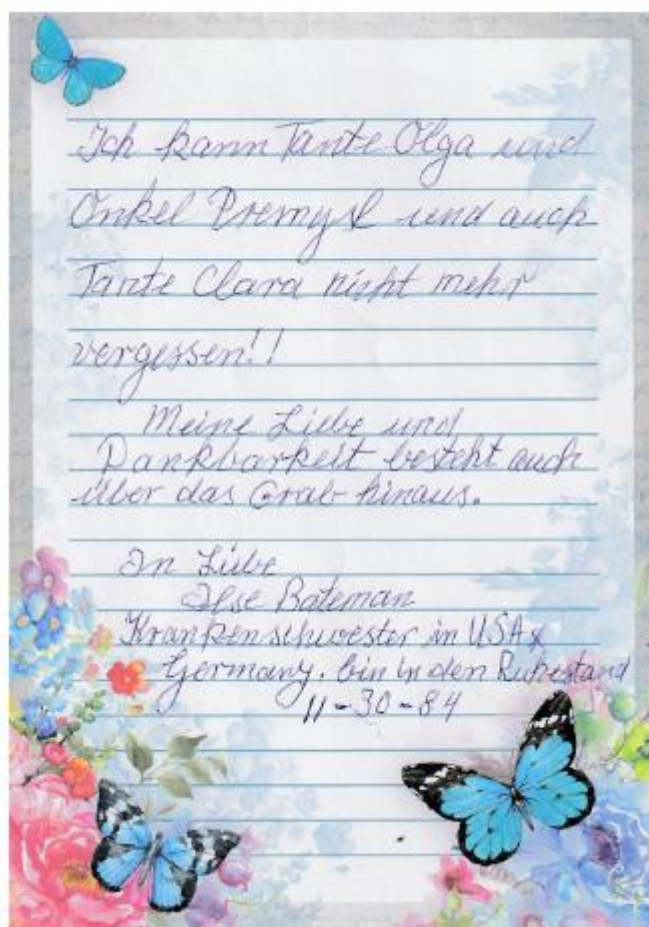 Ich kann Tante Olga und
Onkel Premysl und auch
Tante Clara nicht mehr
vergessen!!
Meine Liebe und
Dankbarkeit besteht auch
über das Grab hinaus.
In Liebe
Ilse Bateman
Krankenschwester in USA &
Germany. bin in den Ruhestand
11-30-84